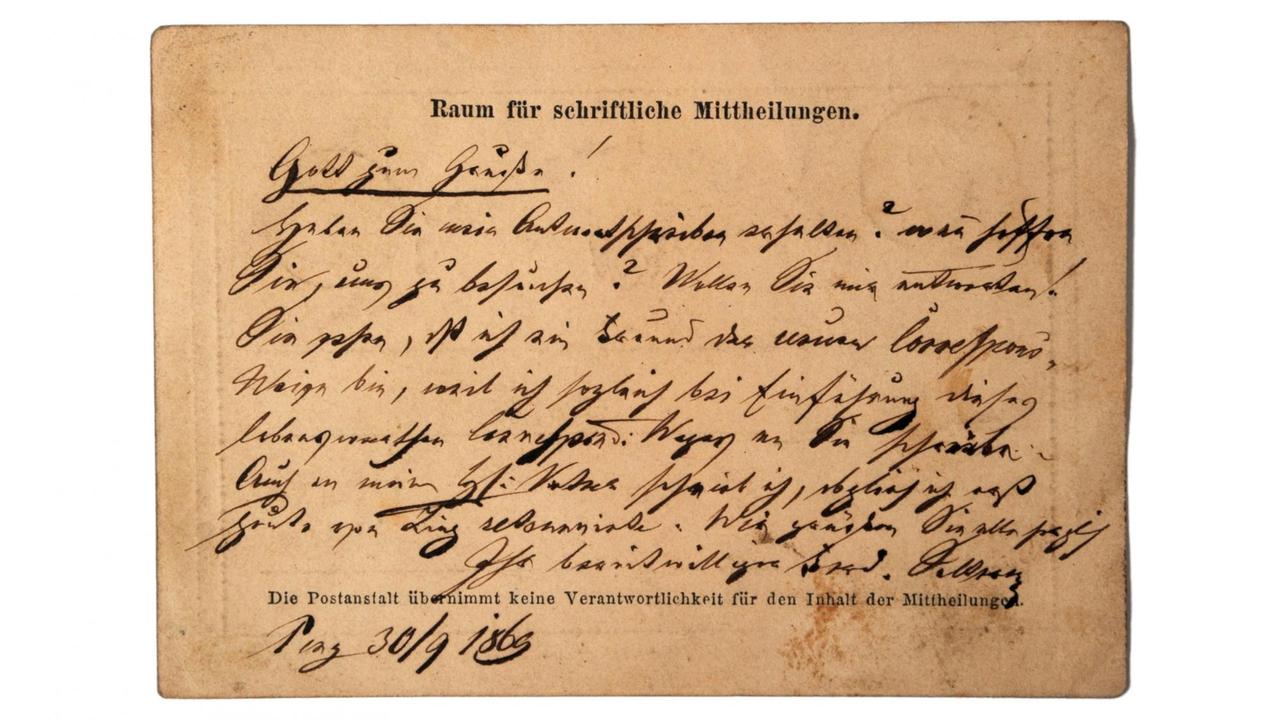 Raum für schriftliche Mittheilungen.
Gott zum Gruße!
Haben Sie mein Antwortschreiben erhalten? wann hoffen
Sie, uns zu besuchen? Wollen Sie mir antworten!
Sie sehen, daß ich ein Freund der neuen Correspon-
bin, weil ich sogleich bei Einführung dieses
lobenswerthen Correspond: an Sie schreibe.
Auch an meinen Vater schrieb ich, obgleich ich erst
heute von Linz. Wir grüßen Sie alle
Ihr bereitwilliger Ferd.
Die Postanstalt übernimmt keine Verantwortlichkeit für den Inhalt der Mittheilungen.
30/9 1869